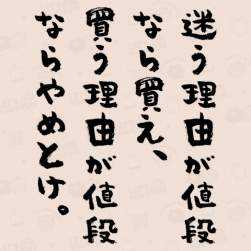 迷う理由が値段
なら買え、
買う理由が値段
ならやめとけ。